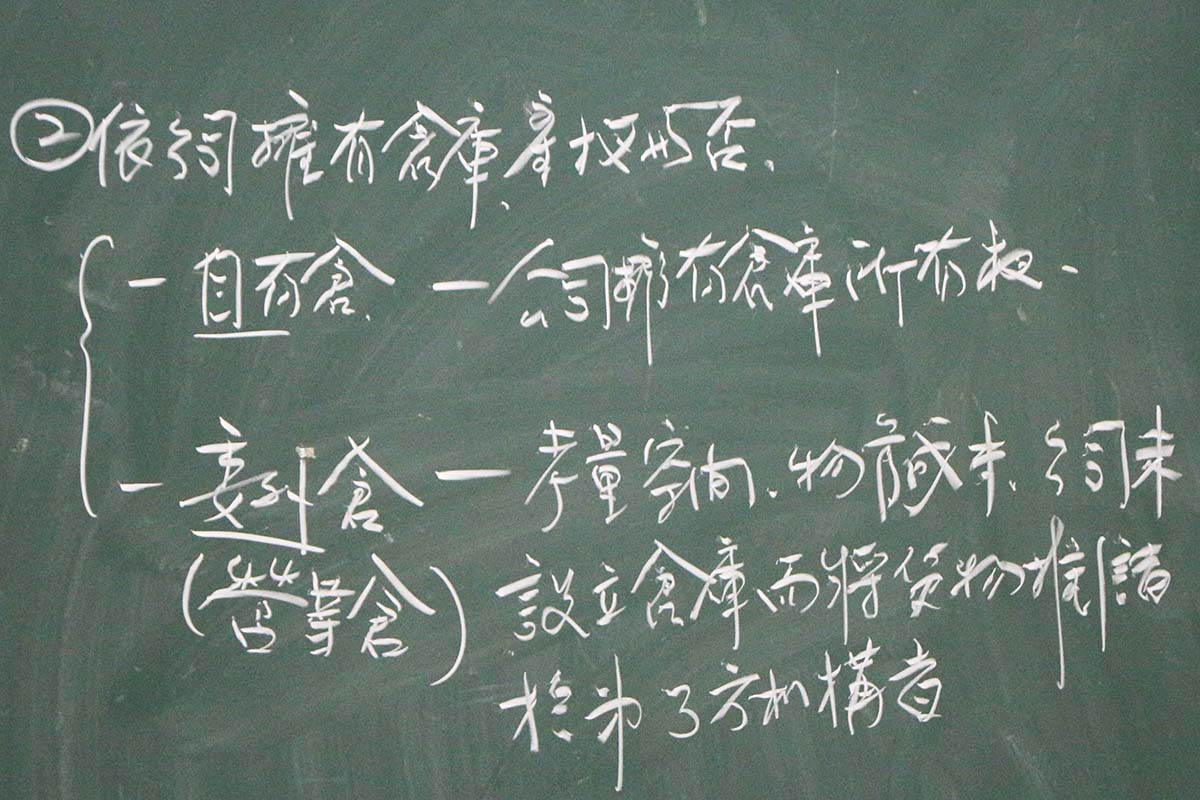 ②依公司擁有倉庫產权与否、
- 自有倉、 — 公司擁有倉庫所有权.
- 委外倉 — 考量空間、物成本、公司未
(營業倉) 設立倉庫而將貨物堆儲
於第三方机構者